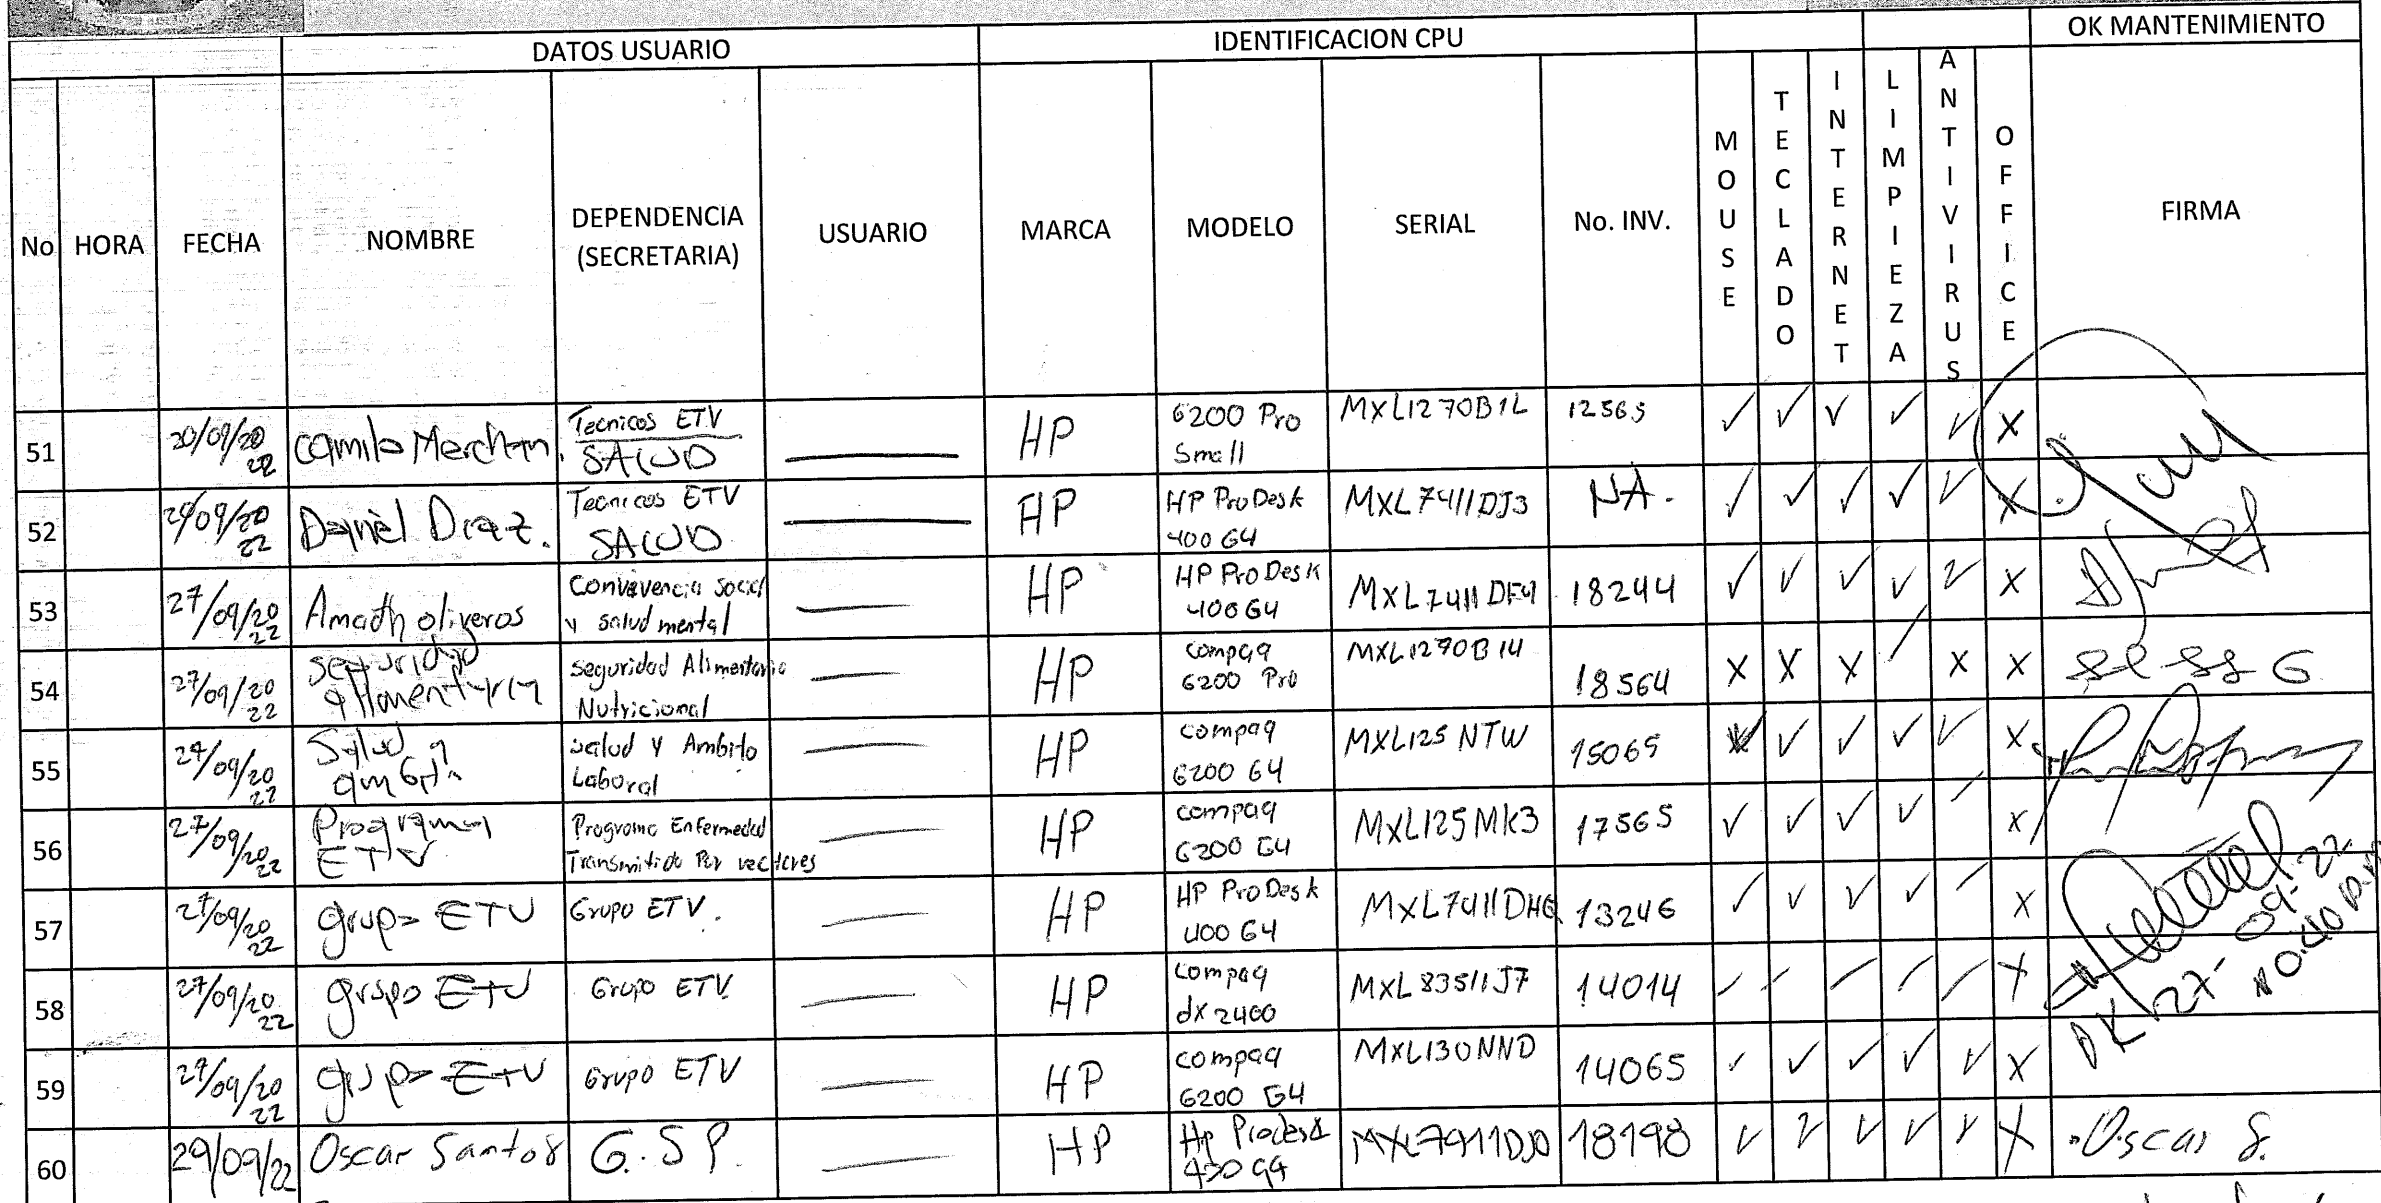 DATOS USUARIO IDENTIFICACION CPU OK MANTENIMIENTO
No HORA FECHA NOMBRE DEPENDENCIA (SECRETARIA) USUARIO MARCA MODELO SERIAL No. INV. MOUSE TECLADO INTERNET LIMPIEZA ANTIVIRUS OFFICE FIRMA
51 Camilo Merchan. Tecnicos ETV SALUD HP 6200 Pro Small MXL1270B1L 12565 ✓ ✓ ✓ ✓ ✓ X
52 Daniel Diaz. Tecnicos ETV SALUD HP HP ProDesk 400 G4 MXL7411DJ3 NA. ✓ ✓ ✓ ✓ ✓ X
53 27/09/2022 Amadh oliveros Convevencia Social y salud mental HP HP ProDesk 400 G4 MXL7411DF4 18244 ✓ ✓ ✓ ✓ ✓ X
54 27/09/2022 seguridad alimentaria Seguridad Alimentaria Nutricional HP compaq 6200 Pro MXL1270B14 18564 X X X ✓ X X
55 27/09/2022 Salud y Salud y Ambito Laboral HP compaq 6200 G4 MXL125NTW 15065 ✓ ✓ ✓ ✓ X
56 27/09/2022 Programa ETV Programa Enfermedad Transmitida Por vectores HP compaq 6200 G4 MXL125MK3 17565 ✓ ✓ ✓ ✓ ✓ X
57 27/09/2022 grupo ETV Grupo ETV. HP HP ProDesk 400 G4 MXL7411DHG 13246 ✓ ✓ ✓ ✓ ✓ X
58 27/09/2022 grupo ETV Grupo ETV. HP compaq dx 2400 MXL83511J7 14014 ✓ ✓ ✓ ✓ ✓ X OK 27-09-22 10:40 a.m
59 27/09/2022 grupo ETV Grupo ETV HP compaq 6200 G4 MXL130NND 14065 ✓ ✓ ✓ ✓ ✓ X
60 29/09/22 Oscar Santos G.S.P. HP Hp Prodesk 18198 ✓ ✓ ✓ ✓ ✓ X Oscar S.